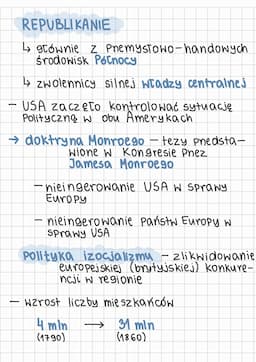 REPUBLIKANIE
↳ głównie z przemysłowo-handowych
środowisk Północy
↳ zwolennicy silnej władzy centralnej
- USA zaczęło kontrolować sytuację
polityczną w obu Amerykach
→ doktryna Monroego - tezy przedsta-
wione w Kongresie przez
Jamesa Monroego
- nieingerowanie USA w sprawy
Europy
- nieingerowanie państw Europy w
sprawy USA
Polityka izocjalizmu - zlikwidowanie
europejskiej (brytyjskiej) konkure-
ncji w regionie
- wzrost liczby mieszkańców
4 mln → 31 mln
(1790) (1860)